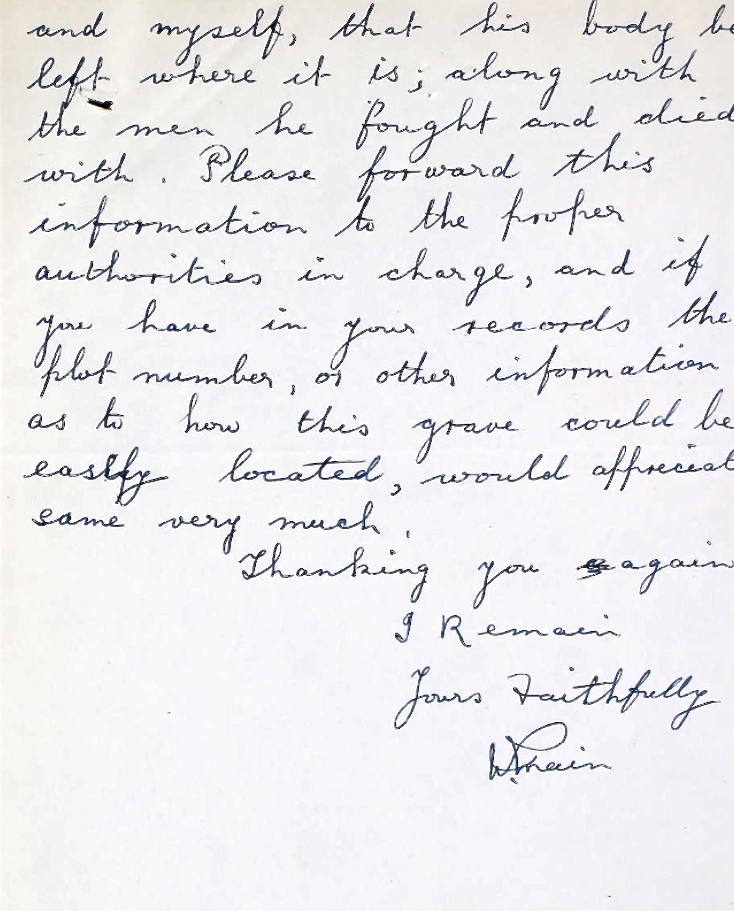 and myself, that his body be
left where it is; along with
the men he fought and died
with. Please forward this
information to the proper
authorities in charge, and if
you have in your records the
plot number, or other information
as to how this grave could be
easily located, would appreciat
same very much.
Thanking you again
I Remain
Yours Faithfully